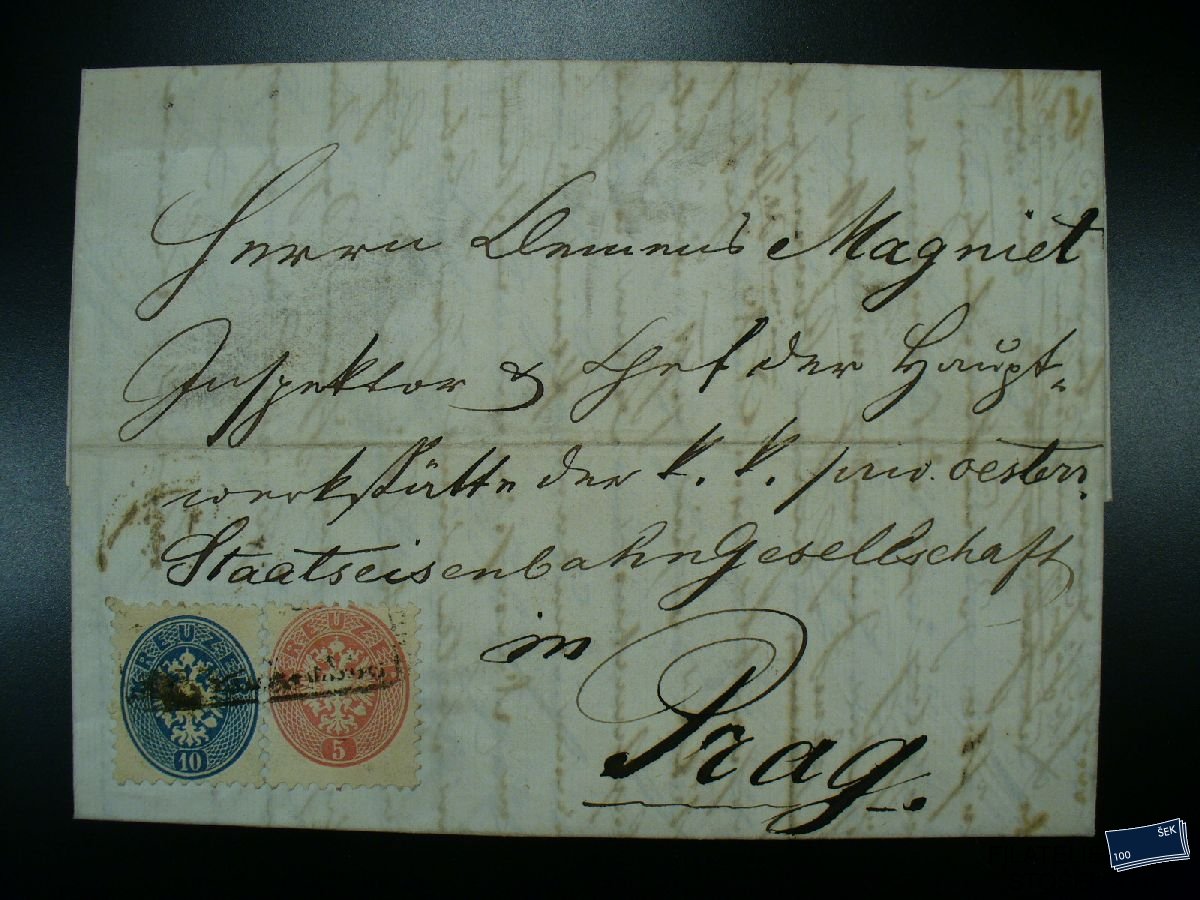 Herrn Clemens Magniet
Inspektor & Chef der Haupt-
werkstätte der k. k. priv. oesterr.
Staatseisenbahngesellschaft
in
Prag.
KREUZER
10
KREUZER
5
100 ŠEK